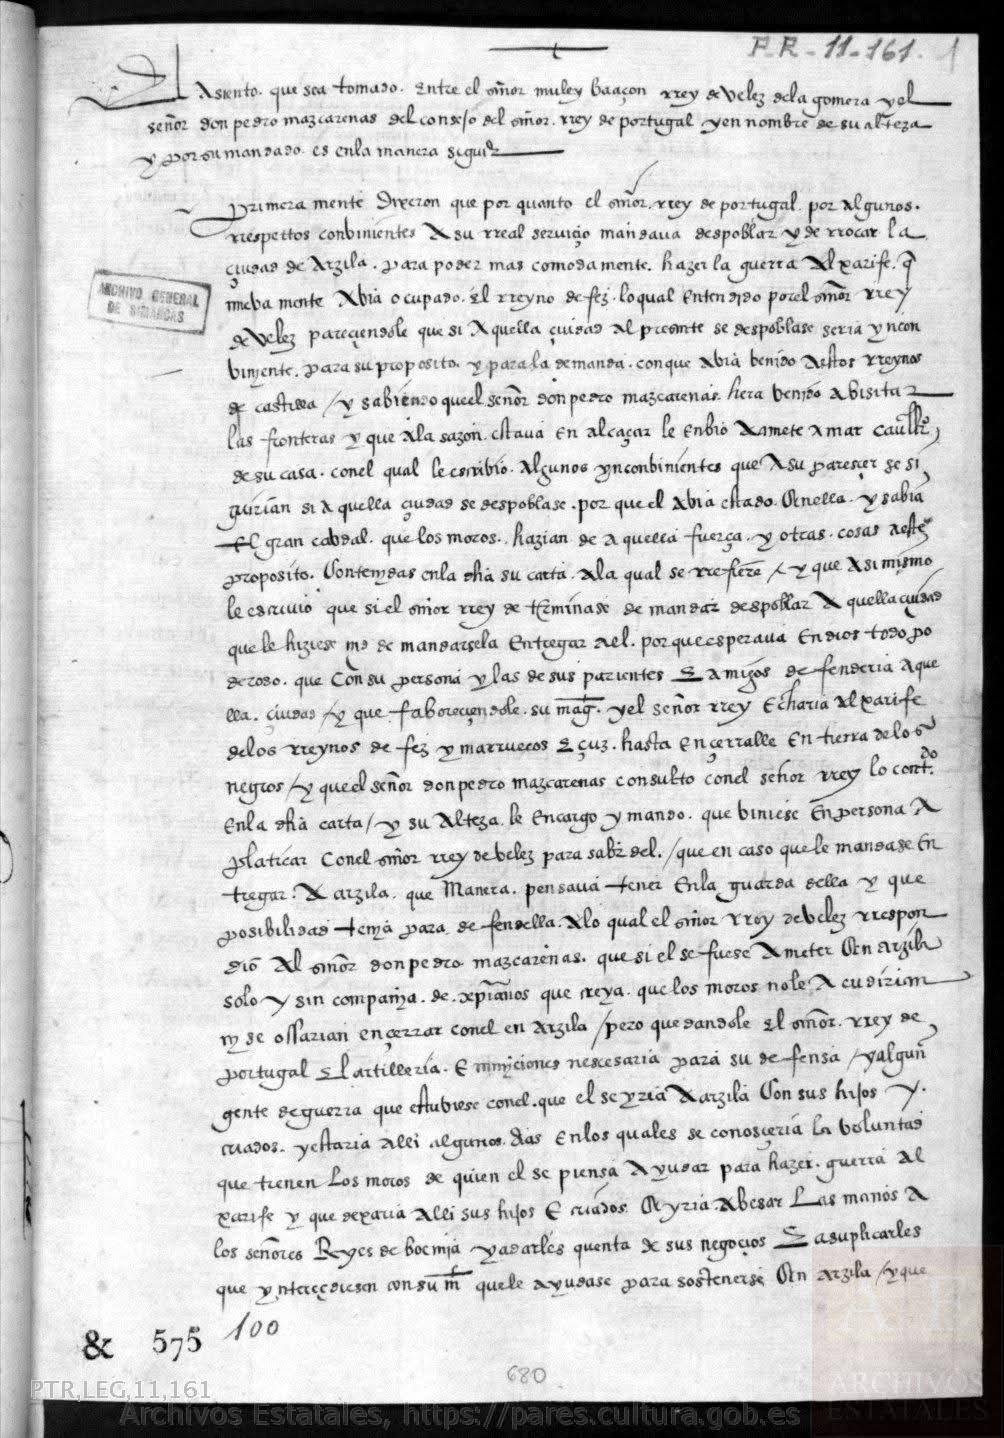 P.R - 11-161. 1
El Asiento. que sea tomado. Entre el señor muley baaçon rrey de velez dela gomera y el
señor don pedro mazcarenas del consejo del señor. rrey de portugal y en nombre de su alteza
y por su mandado es enla manera siguiẽ
Primera mente Dixeron que por quanto el señor. rrey de portugal. por algunos.
rrespettos conbinientes A su rreal seruiçio mandaua despoblar y derrocar la
çiudad de Arzila. para poder mas comodamente. hazer la guerra Al xarife. q̃
nueba mente Abia ocupado. El rreyno de fez. lo qual Entendido por el señor rrey
de velez pareçiendole que si A quella çiudad al presente se despoblase seria yncon
biniente. para su proposito y para la demanda. con que Abia benido A estos rreynos
de castilla / y sabiendo que el señor don pedro mazcarenas. hera benido A bisitar
las fronteras y que Ala sazon. estaua En alcaçar le Enbio Amete Amar cauallrº,
de su casa. con el qual le escribio. Algunos ynconbinientes que A su parescer se si
guirian si A quella çiudad se despoblase. por que el Abia estado. En ella. y sabia
El gran cabdal. que los moros. hazian de A quella fuerça. y otras. cosas A este
proposito. Contenydas enla dha su carta. Ala qual se rrefiere / y que Asi mismo
le escriuio que si el señor rrey determinase de mandar despoblar A quella ciudad
que le hiziese md de mandarsela Entregar a el. por que esperaua En dios todo po
deroso. que Con su persona y las de sus parientes E amigos defenderia A que
lla. çiudad / y que faboreciendole. su mag. y el señor rrey Echaria Al xarife
delos rreynos de fez y marruecos E çuz. hasta Ençerralle En tierra de los
negros / y que el señor don pedro mazcarenas consulto con el señor rrey lo contdo
En la dha carta / y su Alteza. le Encargo y mando. que biniese En persona A
platicar Con el señor rrey de velez para saber del. / que en caso que le mandase En
tregar. A arzila. que Manera. pensaua tener En la guarda della y que
posibilidad tenia para defendella. A lo qual el señor rrey de velez rrespon
dio Al señor don pedro mazcarenas. que si el se fuese A meter En arzila
solo y sin compañya. de. xpianos que creya. que los moros no le A cudirian
ny se ossarian ençerrar con el en Arzila / pero que dandole El señor. rrey de
portugal El artilleria. E munyciones nescesaria para su defensa / y alguna
gente de guerra que estubiese con el. que el se yria A arzila Con sus hijos y.
criados. y estaria alli algunos. dias En los quales se conosçeria la boluntad
que tienen Los moros de quien el se piensa Ayudar para hazer. guerra al
xarife y que dexaria Alli sus hijos E criados. E yria. A besar Las manos A
los señores Reyes de boemia y a darles quenta de sus negoçios E a suplicarles
que ynterçediesen con su mt que le ayudase para sostenerse En arzila / y que
ARCHIVO GENERAL
DE SIMANCAS
& 575 100
680
PTR,LEG,11,161
Archivos Estatales, https://pares.cultura.gob.es
ARCHIVOS
ESTATALES